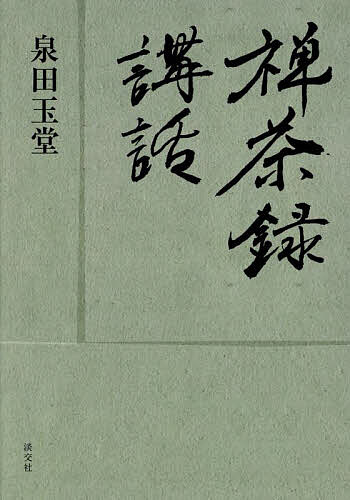 禅茶録
講話
泉田玉堂
淡交社